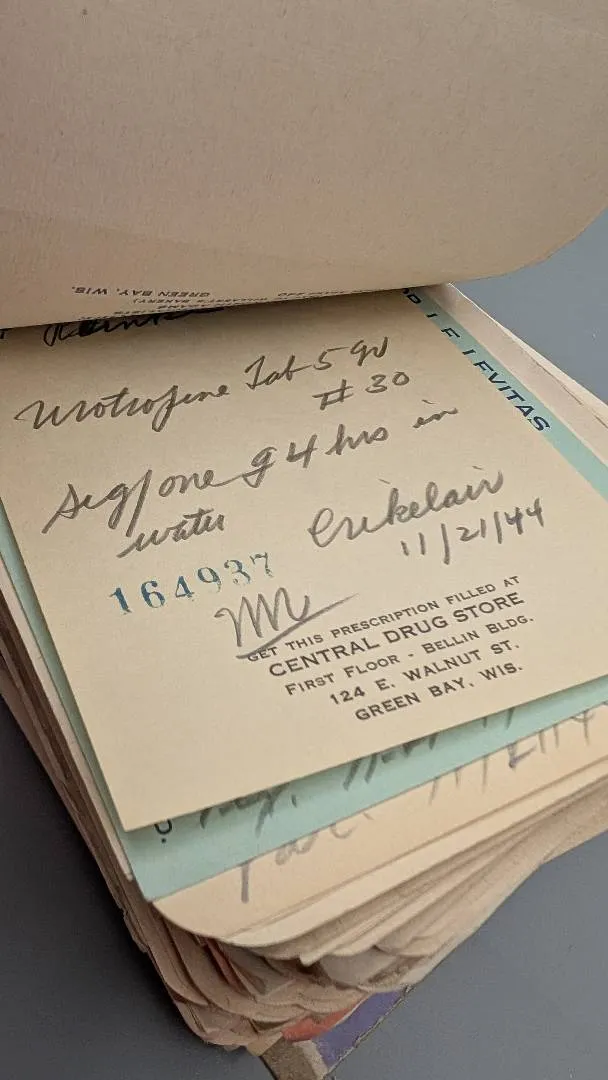 GREEN BAY, WIS.
Urotrofine Tab 5 gr
# 30
Sig/ one q 4 hrs in
water
Crikelair
11/21/44
164937
GET THIS PRESCRIPTION FILLED AT
CENTRAL DRUG STORE
FIRST FLOOR - BELLIN BLDG.
124 E. WALNUT ST.
GREEN BAY, WIS.
LEVITAS